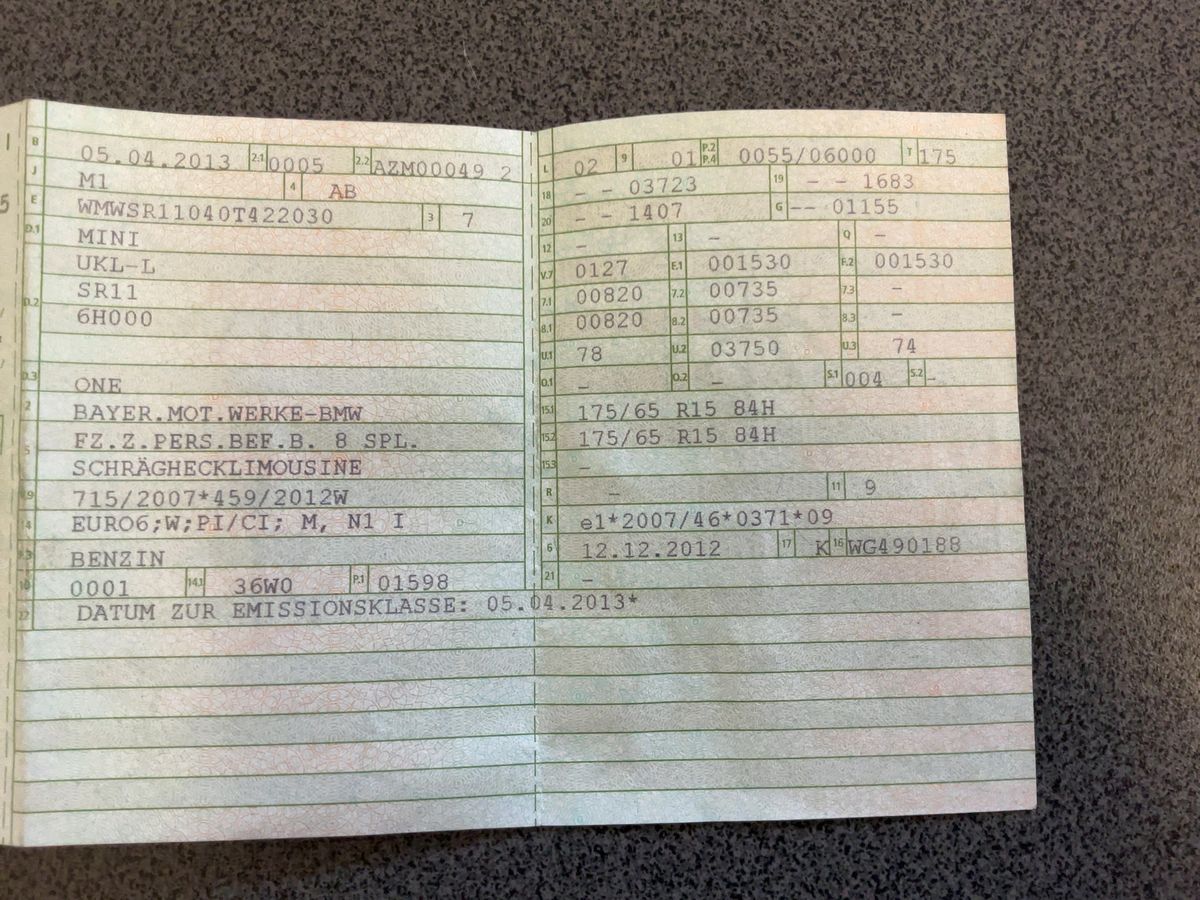 B 05.04.2013 2.1 0005 2.2 AZM00049 2
J M1 4 AB
E WMWSR11040T422030 3 7
D.1 MINI
UKL-L
D.2 SR11
6H000
D.3 ONE
2 BAYER.MOT.WERKE-BMW
5 FZ.Z.PERS.BEF.B. 8 SPL.
SCHRÄGHECKLIMOUSINE
V.9 715/2007*459/2012W
14 EURO6;W;PI/CI; M, N1 I
P.3 BENZIN
10 0001 14.1 36W0 P.1 01598
22 DATUM ZUR EMISSIONSKLASSE: 05.04.2013*
L 02 9 01 P.2 P.4 0055/06000 T 175
18 - - 03723 19 - - 1683
20 - - 1407 G -- 01155
12 - 13 - Q -
V.7 0127 F.1 001530 F.2 001530
7.1 00820 7.2 00735 7.3 -
8.1 00820 8.2 00735 8.3 -
U.1 78 U.2 03750 U.3 74
O.1 - O.2 - S.1 004 S.2 -
15.1 175/65 R15 84H
15.2 175/65 R15 84H
15.3 -
R - 11 9
K e1*2007/46*0371*09
6 12.12.2012 17 K 16 WG490188
21 -